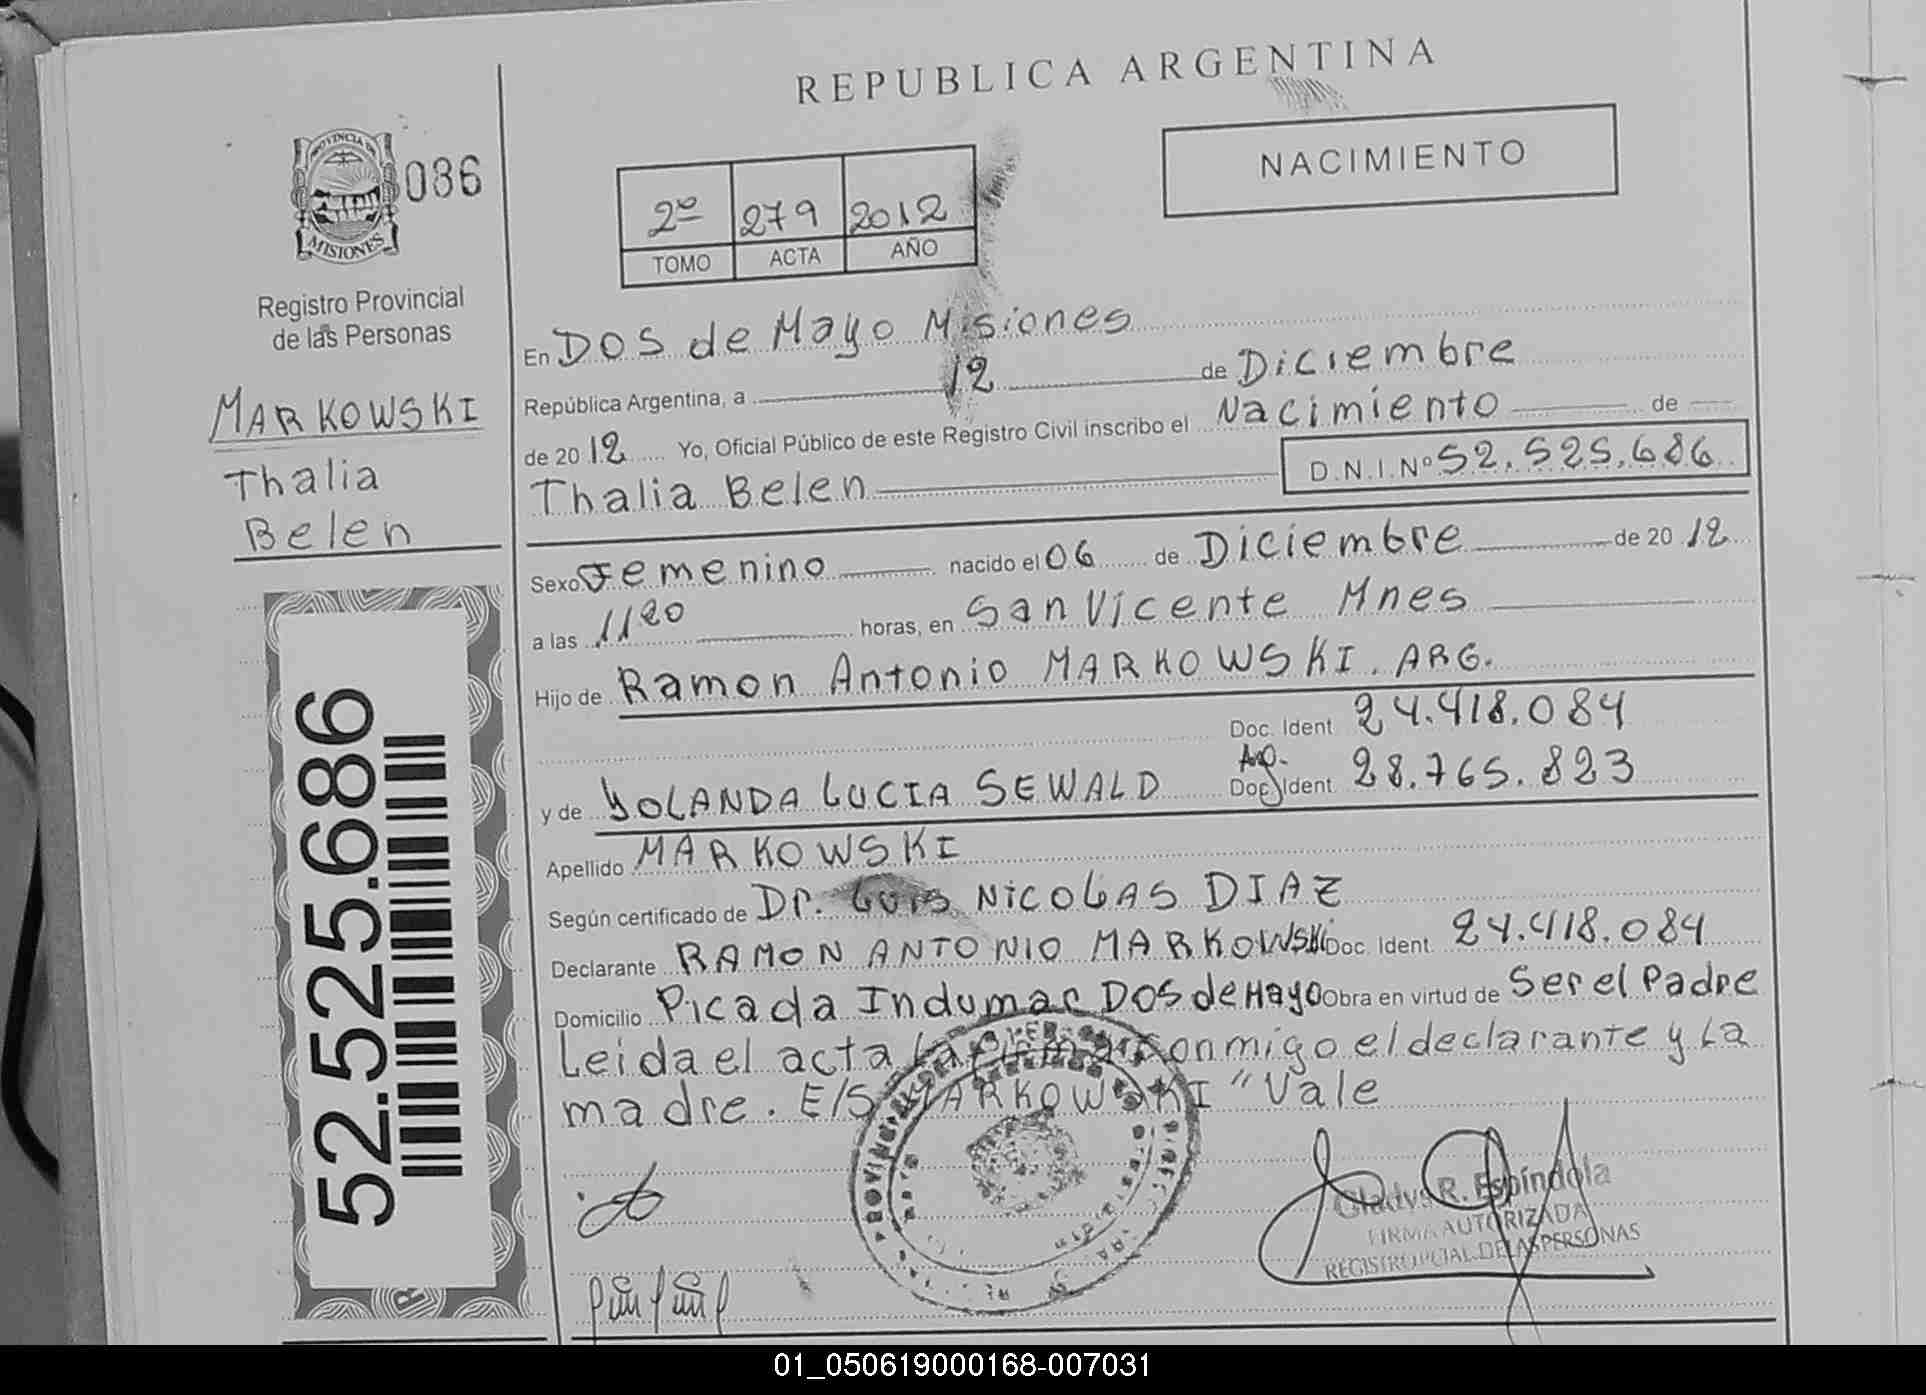 REPUBLICA ARGENTINA
NACIMIENTO
PROVINCIA DE
MISIONES
086
Registro Provincial
de las Personas
MARKOWSKI
Thalia
Belen
52.525.686
2º 279 2012
TOMO ACTA AÑO
En Dos de Mayo Misiones
República Argentina, a 12 de Diciembre
de 2012 Yo, Oficial Público de este Registro Civil inscribo el Nacimiento de
Thalia Belen D.N.I.Nº 52.525.686
Sexo Femenino nacido el 06 de Diciembre de 2012
a las 11 20 horas, en San Vicente Mnes
Hijo de Ramon Antonio MARKOWSKI. ARG.
Doc. Ident 24.418.084
y de YOLANDA LUCIA SEWALD Arg. Doc. Ident 28.765.823
Apellido MARKOWSKI
Según certificado de Dr. Luis NICOLAS DIAZ
Declarante RAMON ANTONIO MARKOWSKI Doc. Ident. 24.418.084
Domicilio Picada Indumar Dos de Mayo Obra en virtud de Ser el Padre
Leida el acta la firman conmigo el declarante y La
madre. E/S MARKOWSKI " Vale
Gladys R. Espíndola
FIRMA AUTORIZADA
REGISTRO PCIAL. DE LAS PERSONAS
01_050619000168-007031